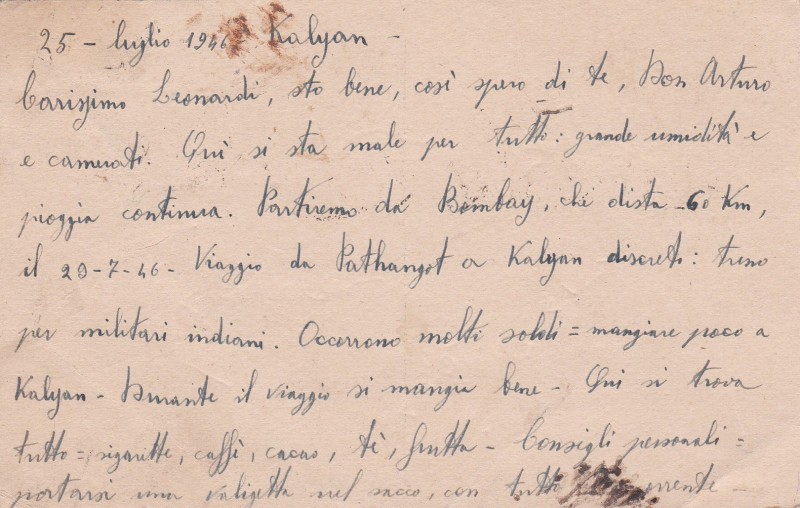 25 - luglio 1946 Kalyan -
Carissimo Leonardi, sto bene, così spero di te, Don Arturo
e camerati. Quì si sta male per tutto: grande umidità e
pioggia continua. Partiremo da Bombay, che dista 60 Km,
il 29-7-46 - Viaggio da Pathangot a Kalyan discreto: treno
per militari indiani. Occorrono molti soldi = mangiare poco a
Kalyan - Durante il viaggio si mangia bene - Qui si trova
tutto = sigarette, caffè, cacao, tè, frutta - Consigli personali =
portarsi una valigetta nel sacco, con tutto